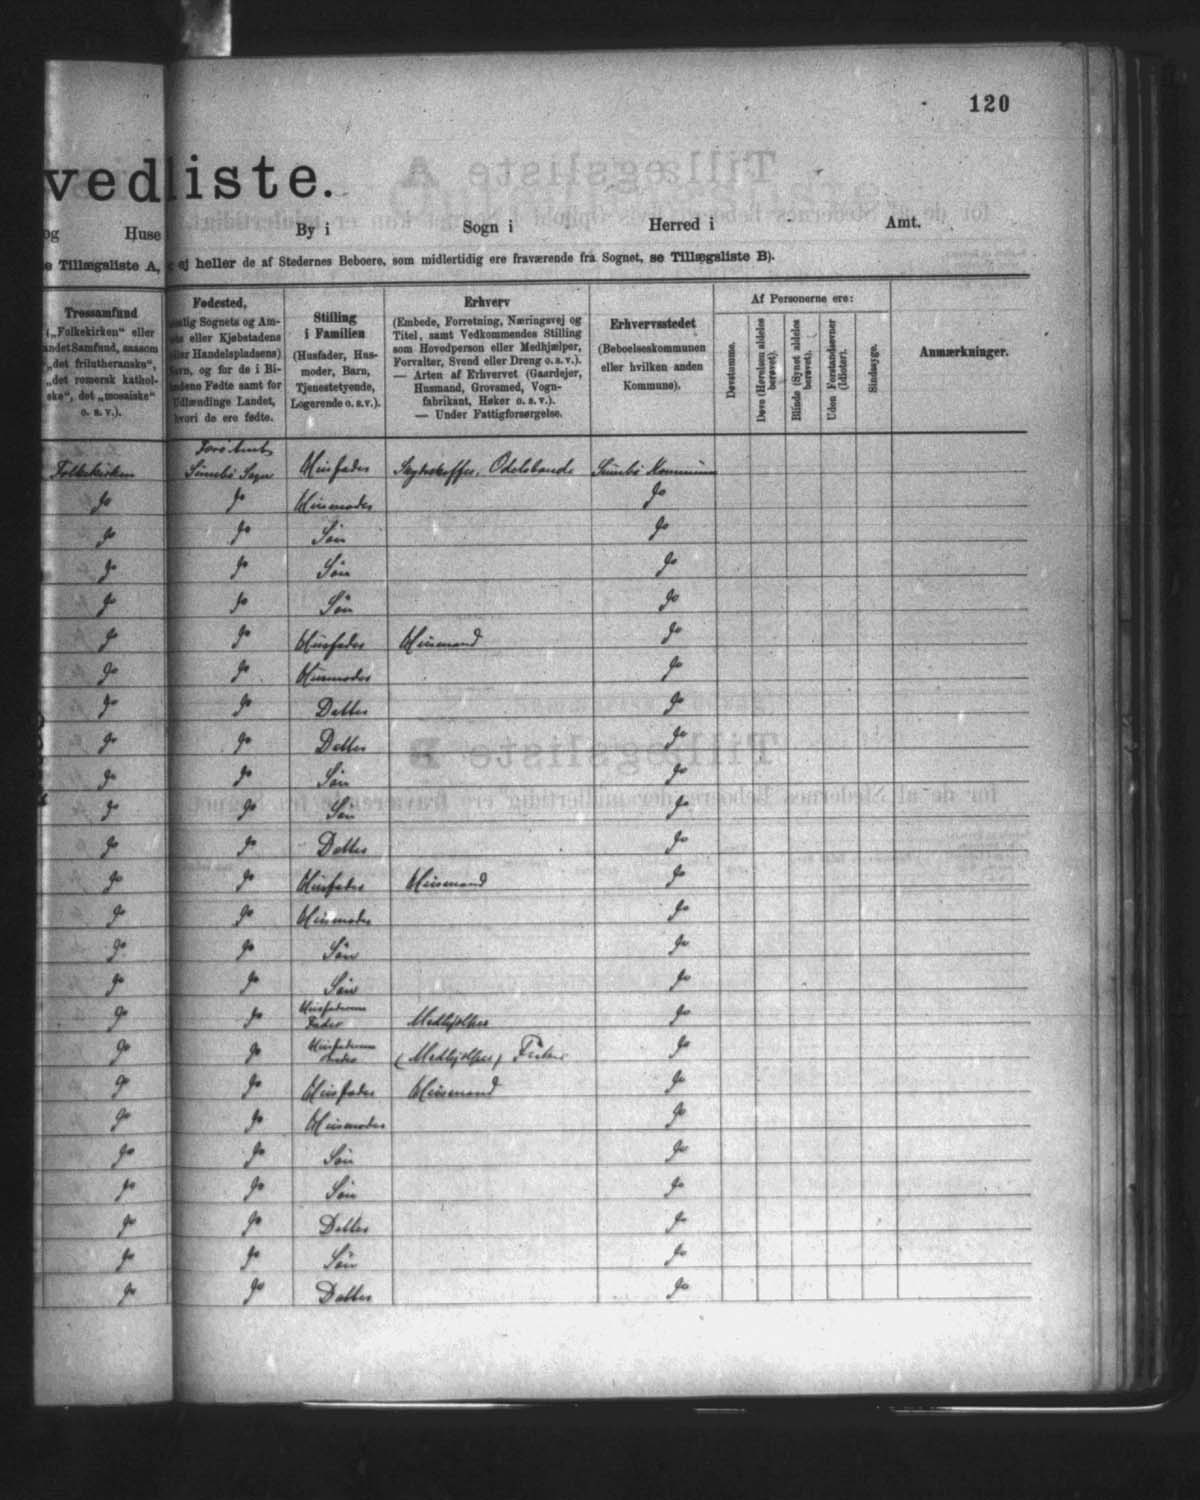 120
vedliste.
og Huse By i Sogn i Herred i Amt.
e Tillægsliste A, ej heller de af Stedernes Beboere, som midlertidig ere fraværende fra Sognet, se Tillægsliste B).
Trossamfund
(„Folkekirken“ eller
andet Samfund, saasom
„det frilutheranske“,
„det romersk kathol-
ske“, det „mosaiske“
o. s. v.).
Fødested,
Sognets og Am-
eller Kjøbstadens
Handelspladsens)
Navn, og for de i Bi-
landene Fødte samt for
Udlændinge Landet,
hvori de ere fødte.
Stilling
i Familien
(Husfader, Hus-
moder, Barn,
Tjenestetyende,
Logerende o. s. v.).
Erhverv
(Embede, Forretning, Næringsvej og
Titel, samt Vedkommendes Stilling
som Hovedperson eller Medhjælper,
Forvalter, Svend eller Dreng o. s. v.).
— Arten af Erhvervet (Gaardejer,
Husmand, Grovsmed, Vogn-
fabrikant, Høker o. s. v.).
— Under Fattigforsørgelse.
Erhvervsstedet
(Beboelseskommunen
eller hvilken anden
Kommune).
Af Personerne ere:
Døvstumme.
Døve (Hørelsen aldeles
berøvet).
Blinde (Synet aldeles
berøvet).
Uden Forstandsevner
(Idioter).
Sindssyge.
Anmærkninger.
Færø Amt,
Folkekirken Sumbø Sogn Husfader Odelsbonde Sumbø Kommune
do do Husmoder do
do do Søn do
do do Søn do
do do Søn do
do do Husfader Huusmand do
do do Husmoder do
do do Datter do
do do Datter do
do do Søn do
do do Søn do
do do Datter do
do do Husfader Huusmand do
do do Husmoder do
do do Søn do
do do Søn do
do do Husfaderens
Fader Medhjælper do
do do Husfaderens
(Medhjælper) Fisker do
do do Husfader Huusmand do
do do Husmoder do
do do Søn do
do do Søn do
do do Datter do
do do Søn do
do do Datter do